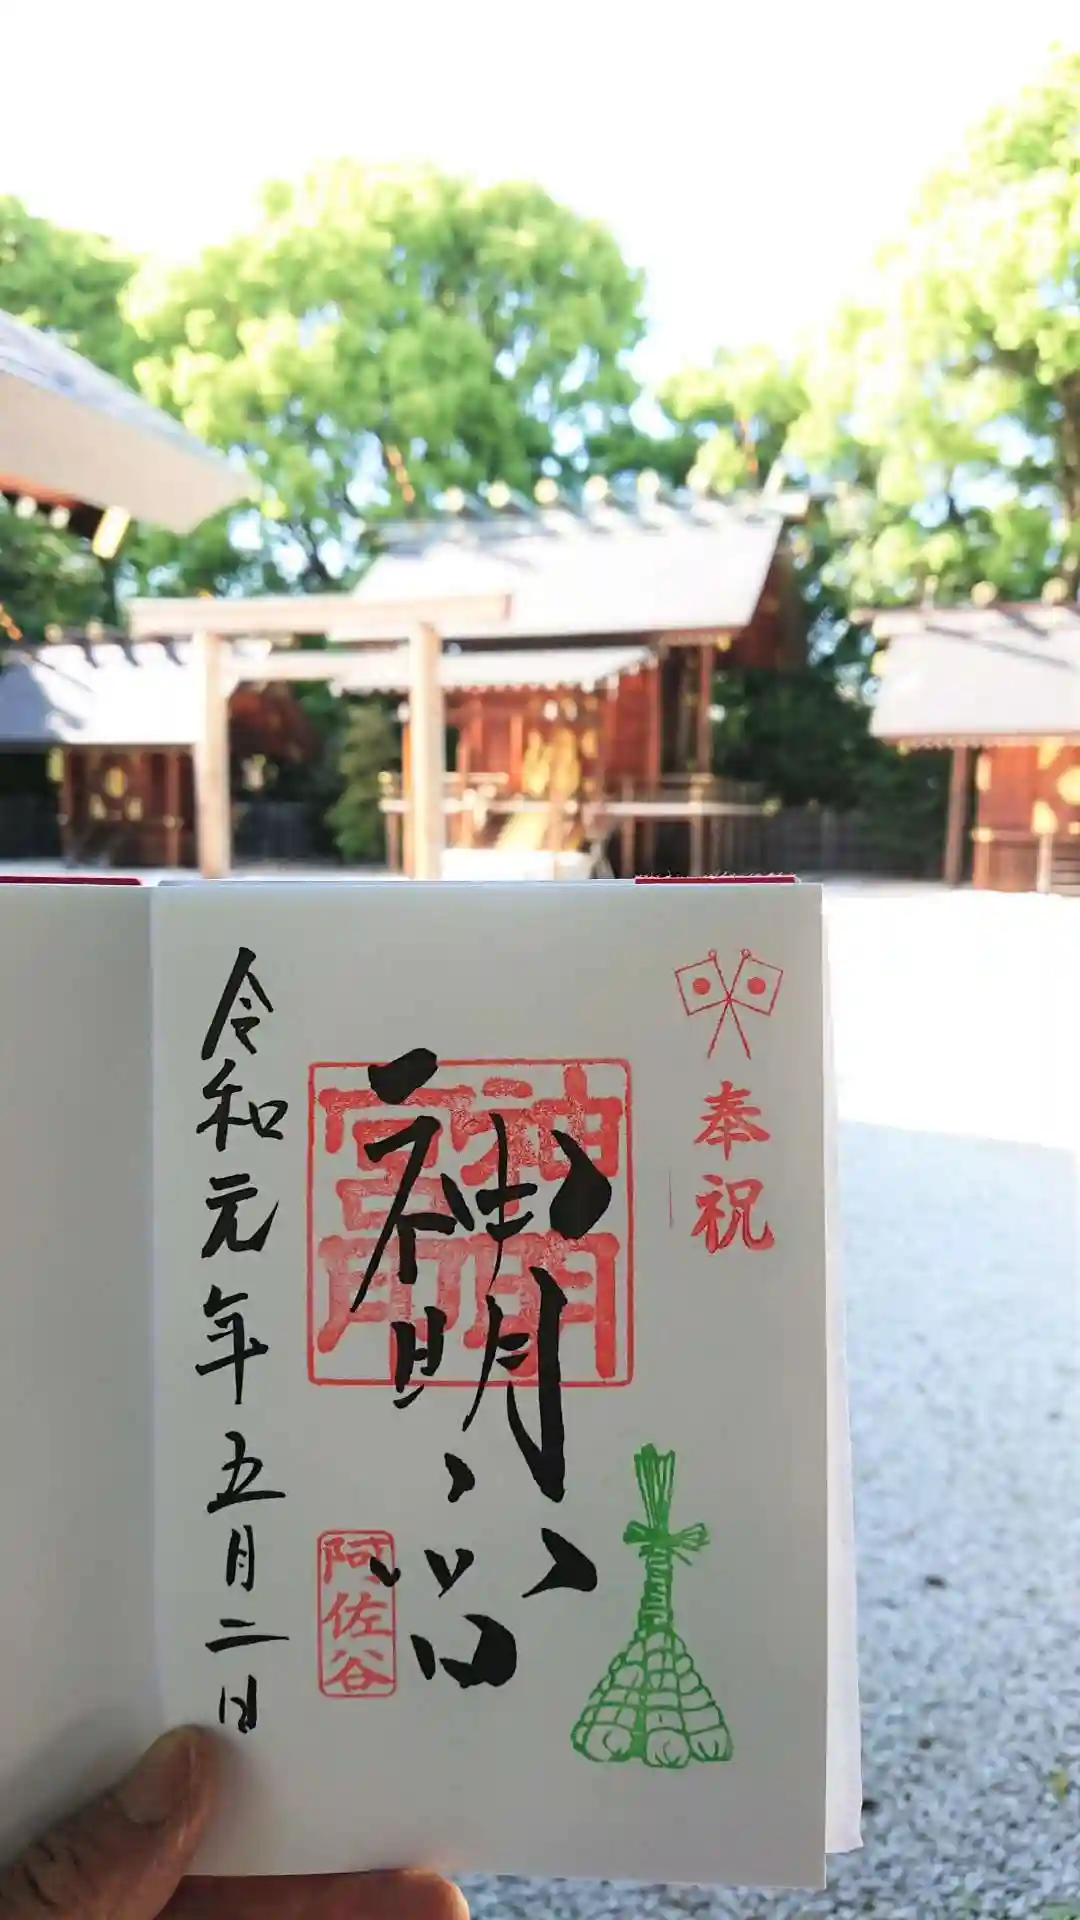 奉祝
神明宮
神明宮
阿佐谷
令和元年五月二日